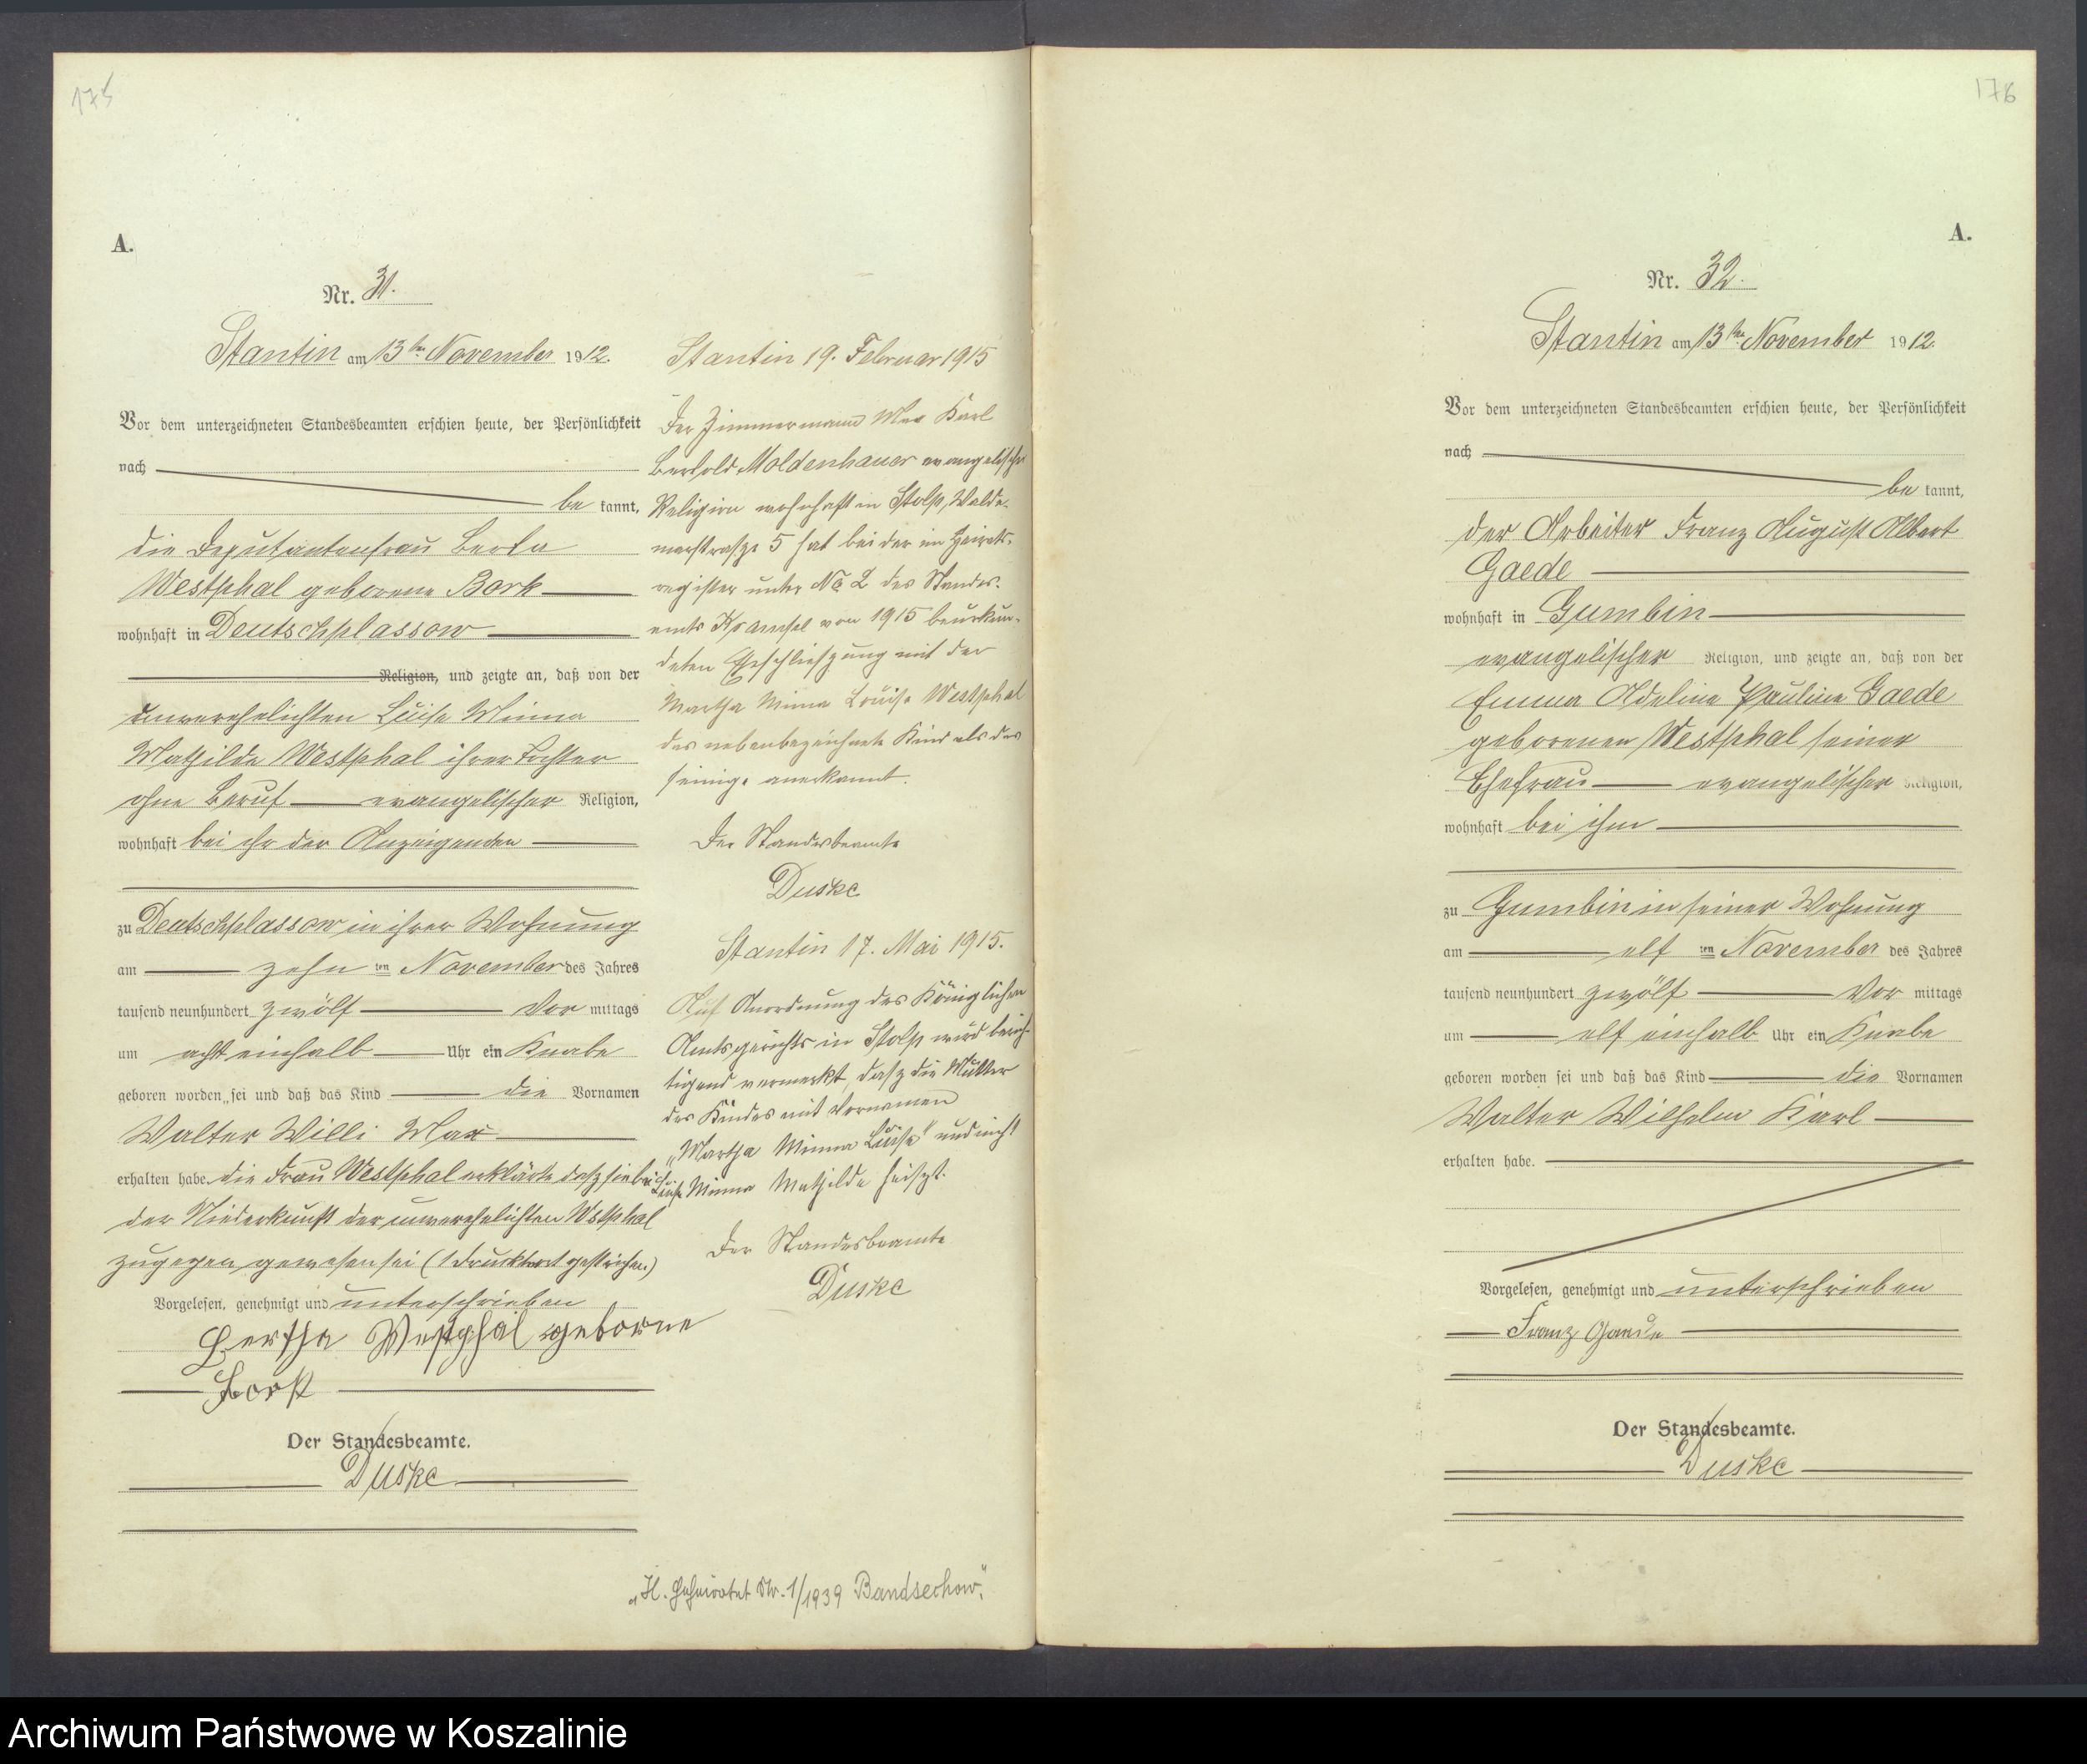 175
A.
Nr. 31.
Stantin am 13ten November 1912.
Vor dem unterzeichneten Standesbeamten erschien heute, der Persönlichkeit
nach
be kannt,
die Deputantenfrau Berta
Westphal geborene Bork
wohnhaft in Deutschplassow
Religion, und zeigte an, daß von der
unverehelichten Luise Minna
Mathilde Westphal ihrer Tochter
ohne Beruf evangelischer Religion,
wohnhaft bei ihr der Anzeigenden
zu Deutschplassow in ihrer Wohnung
am zehn ten November des Jahres
tausend neunhundert zwölf Vor mittags
um acht einhalb Uhr ein Knabe
geboren worden sei und daß das Kind die Vornamen
Walter Willi Max
erhalten habe. die Frau Westphal erklärte daß sie bei
der Niederkunft der unverehelichten Wstphal
zugegen gewesen sei (1 Druckwort gestrichen)
Vorgelesen, genehmigt und unterschrieben
Bertha Westphal geborne
Bork
Der Standesbeamte.
Duske
Stantin 19. Februar 1915
Der Zimmermann Max Karl
Bertold Moldenhauer evangelischer
Religion wohnhaft in Stolp, Walde-
marstraße 5 hat bei der im Heirats-
register unter No 2 des Standes-
amts von 1915 beurkun-
deten Eheschließung mit der
Martha Minna Louise Westphal
das nebenbezeichnete Kind als das
seinige anerkannt.
Der Standesbeamte
Duske
Stantin 17. Mai 1915.
Auf Anordnung des Königlichen
Amtsgerichts in Stolp wird berich-
tigend vermerkt, daß die Mutter
des Kindes mit Vornamen
„Martha Minna Luise" und nicht
Luise Minna Mathilde heißt.
Der Standesbeamte
Duske
„H. Geheiratet Nr. 1/1939 Bandsechow."
176
A.
Nr. 32.
Stantin am 13ten November 1912.
Vor dem unterzeichneten Standesbeamten erschien heute, der Persönlichkeit
nach
be kannt,
der Arbeiter Franz August Albert
Gaede
wohnhaft in Gumbin
evangelischer Religion, und zeigte an, daß von der
Emma Adeline Pauline Gaede
geborenen Westphal seiner
Ehefrau evangelischer Religion,
wohnhaft bei ihm
zu Gumbin in seiner Wohnung
am elf ten November des Jahres
tausend neunhundert zwölf Vor mittags
um elf einhalb Uhr ein Knabe
geboren worden sei und daß das Kind die Vornamen
Walter Wilhelm Karl
erhalten habe.
Vorgelesen, genehmigt und unterschrieben
Franz Gaede
Der Standesbeamte.
Duske
Archiwum Państwowe w Koszalinie